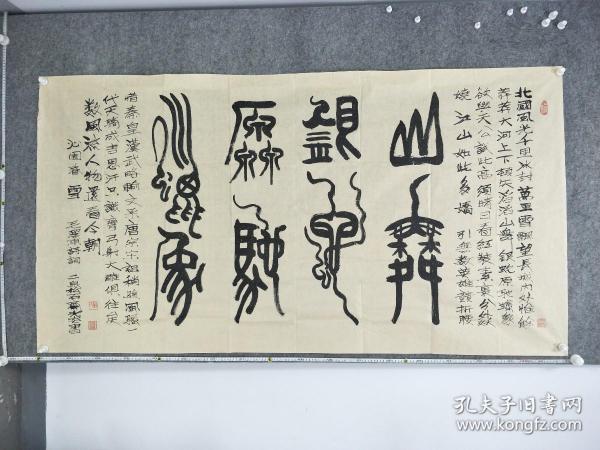 北國風光千里冰封萬里雪飄望長城內外惟餘
莽莽大河上下頓失滔滔山舞銀蛇原馳蠟象
欲與天公試比高須晴日看紅裝素裹分外妖
嬈江山如此多嬌引無數英雄競折腰
山舞
銀蛇
原馳
蠟象
惜秦皇漢武略輸文采唐宗宋祖稍遜風騷一
代天驕成吉思汗只識彎弓射大雕俱往矣
數風流人物還看今朝
沁園春 雪
孔夫子旧书网
www.kongfz.com